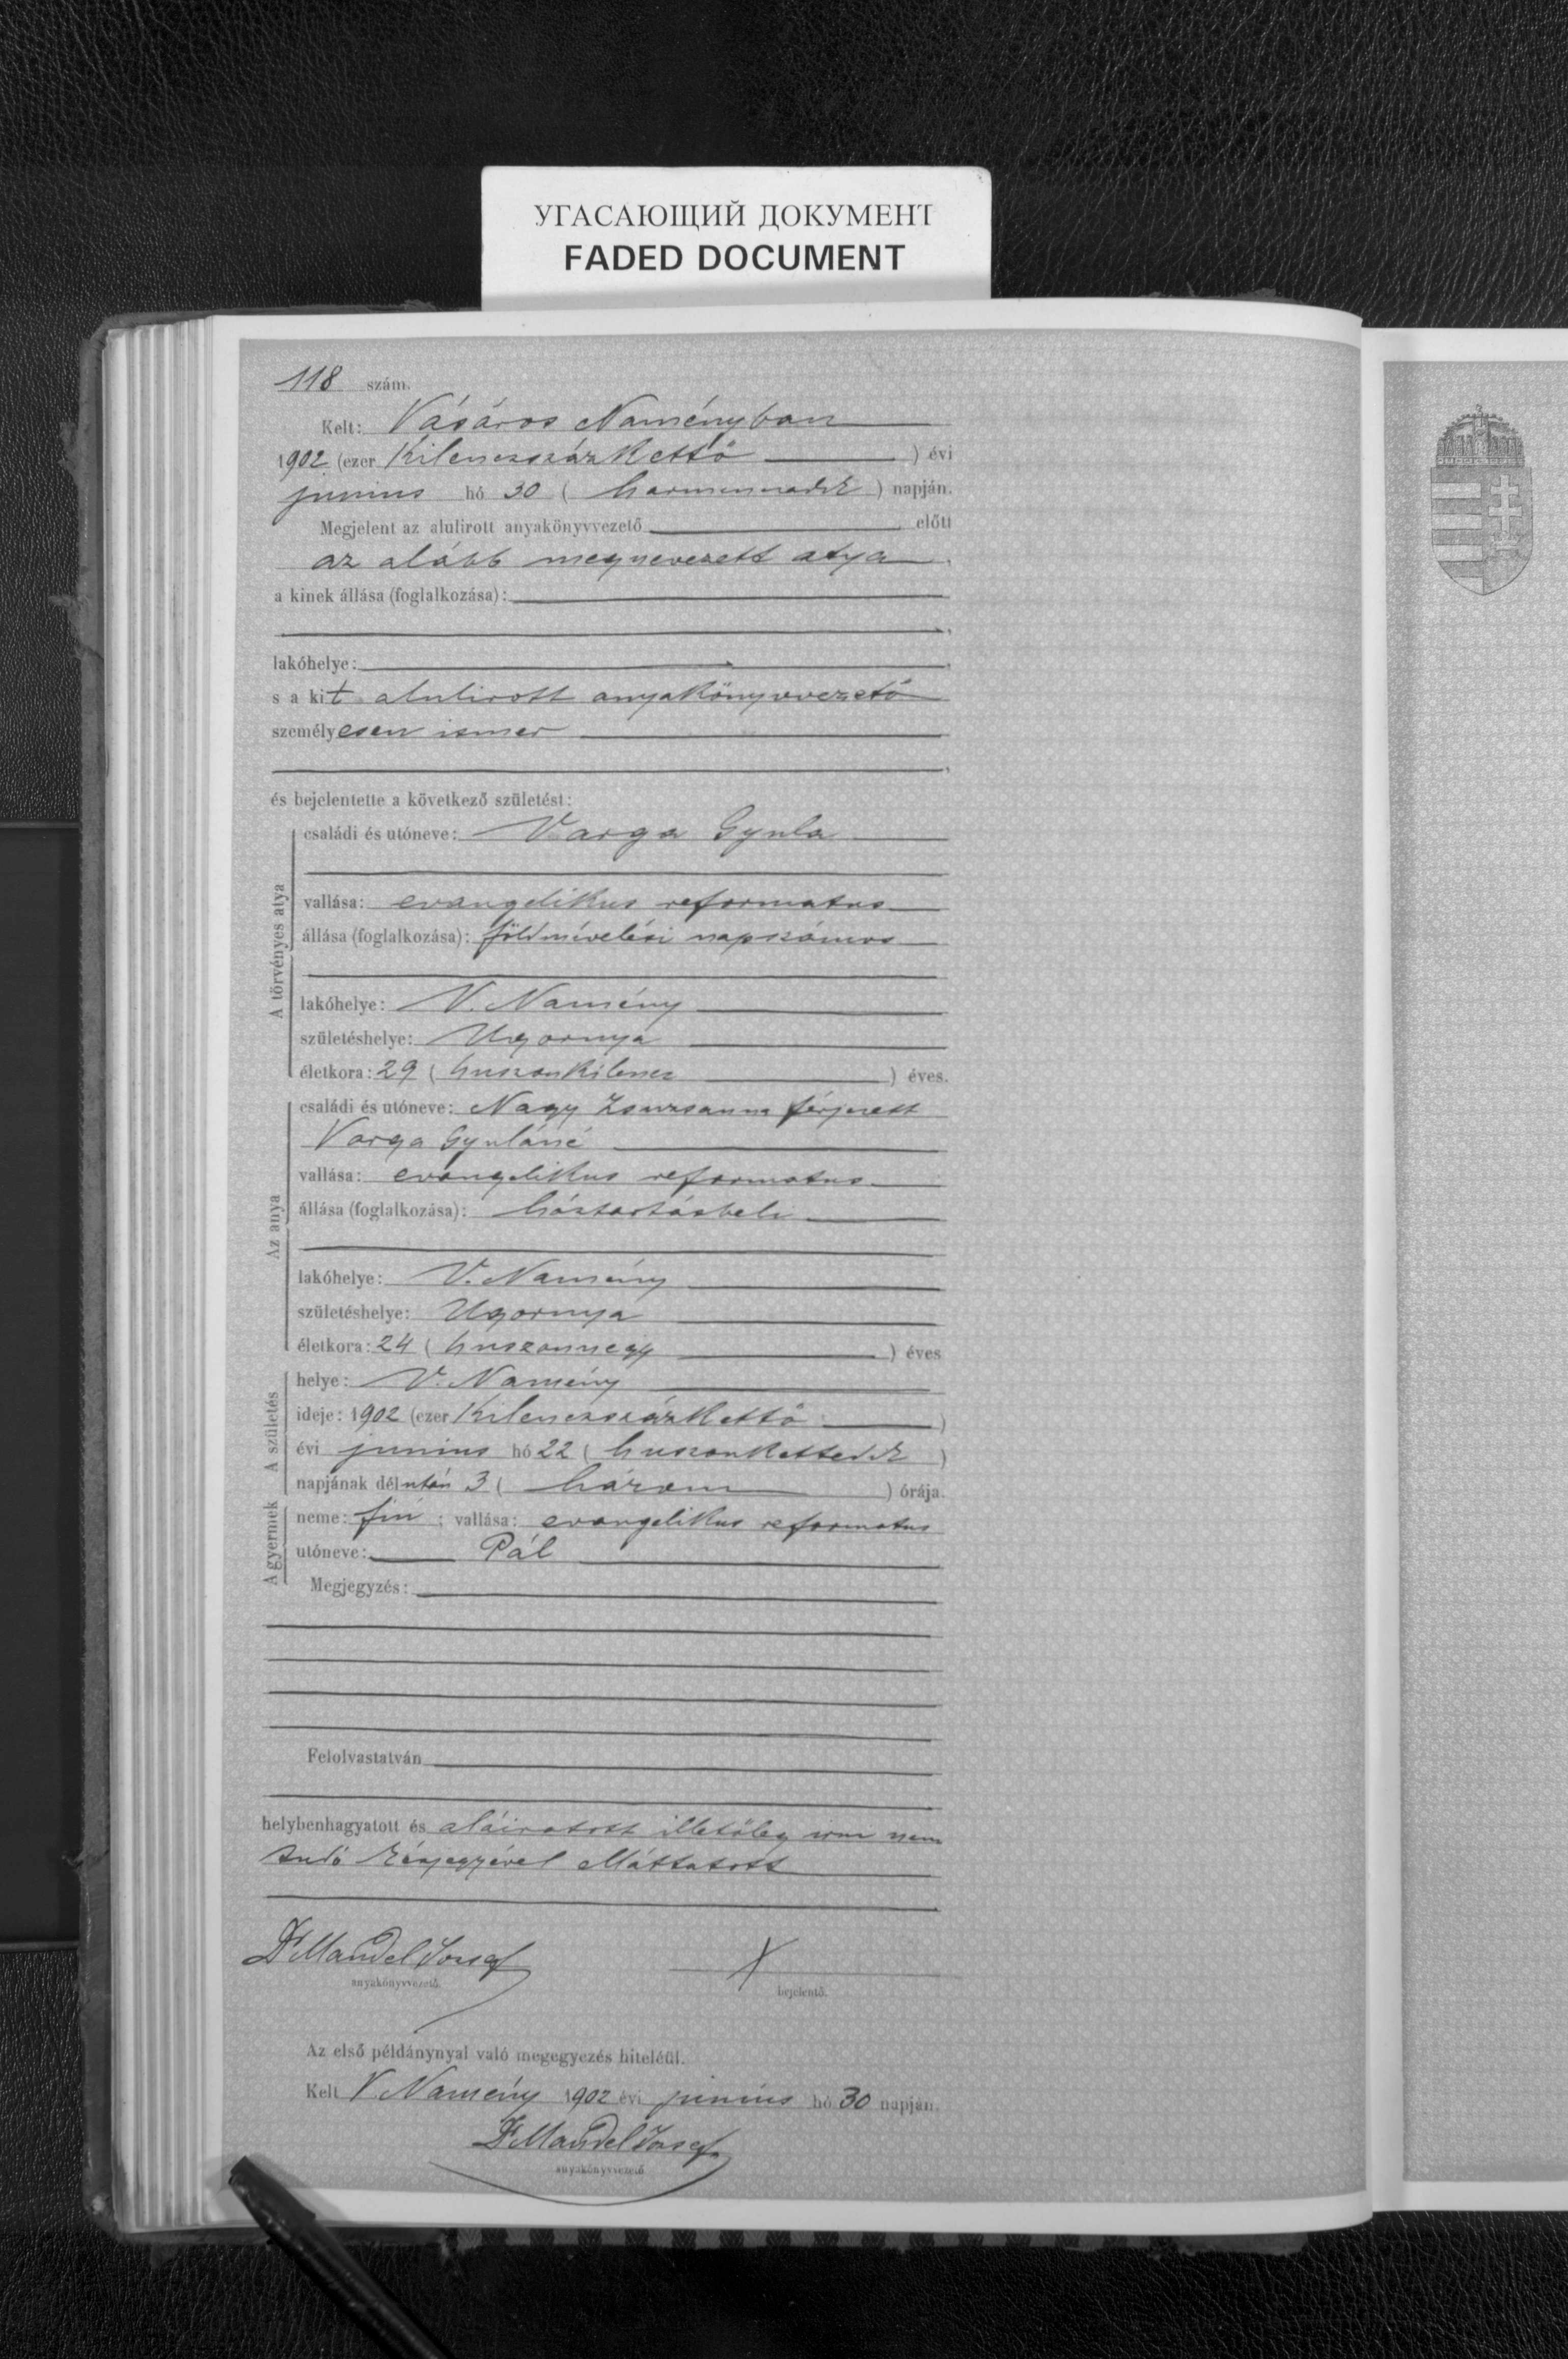 УГАСАЮЩИЙ ДОКУМЕНТ
FADED DOCUMENT
118 szám.
Kelt: Vásáros Naményban
1902 (ezer Kilenczszázkettő ) évi
junius hó 30 ( harminczadik ) napján.
Megjelent az alulirott anyakönyvvezető előtt
az alább megnevezett atya
a kinek állása (foglalkozása):
lakóhelye:
s a kit alulirott anyakönyvvezető
személyesen ismer
és bejelentette a következő születést:
A törvényes atya
családi és utóneve: Varga Gyula
vallása: evangelikus reformatus
állása (foglalkozása): földmivelési napszámos
lakóhelye: V. Namény
születéshelye: Ugornya
életkora: 29 ( huszonkilencz ) éves.
Az anya
családi és utóneve: Nagy Zsuzsanna férjezett
Varga Gyuláné
vallása: evangelikus reformatus
állása (foglalkozása): háztartásbeli
lakóhelye: V. Namény
születéshelye: Ugornya
életkora: 24 ( huszonnegy ) éves
A születés
helye: V. Namény
ideje: 1902 (ezer Kilenczszázkettő )
évi junius hó 22 ( huszonkettedik )
napjának délután 3 ( három ) órája.
A gyermek
neme: fiú ; vallása: evangelikus reformatus
utóneve: Pál
Megjegyzés:
Felolvastatván
helybenhagyatott és aláiratott illetőleg irni nem
tudó kézjegyével elláttatott
Dr Mandel József
anyakönyvvezető.
X
bejelentő.
Az első példánynyal való megegyezés hiteléül.
Kelt V. Namény 1902 évi junius hó 30 napján.
Dr Mandel József
anyakönyvvezető